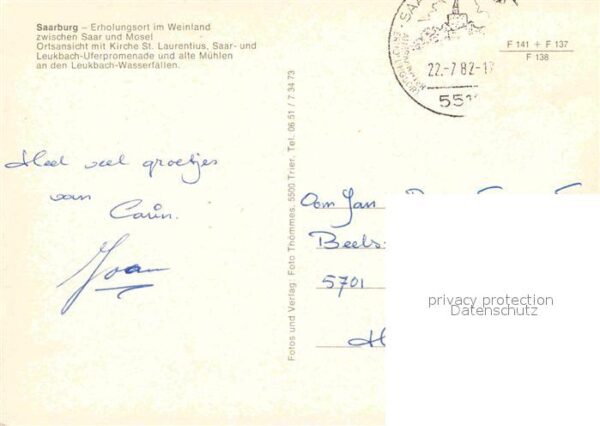 Saarburg – Erholungsort im Weinland
zwischen Saar und Mosel
Ortsansicht mit Kirche St. Laurentius, Saar- und
Leukbach-Uferpromenade und alte Mühlen
an den Leukbach-Wasserfällen.
22.-7.82-1
551
F 141 + F 137
F 138
Heel veel groetjes
van
Carin.
Joan
Fotos und Verlag: Foto Thömmes, 5500 Trier, Tel. 06 51 / 7 34 73
Oom Jan
Beels
5701
privacy protection
Datenschutz